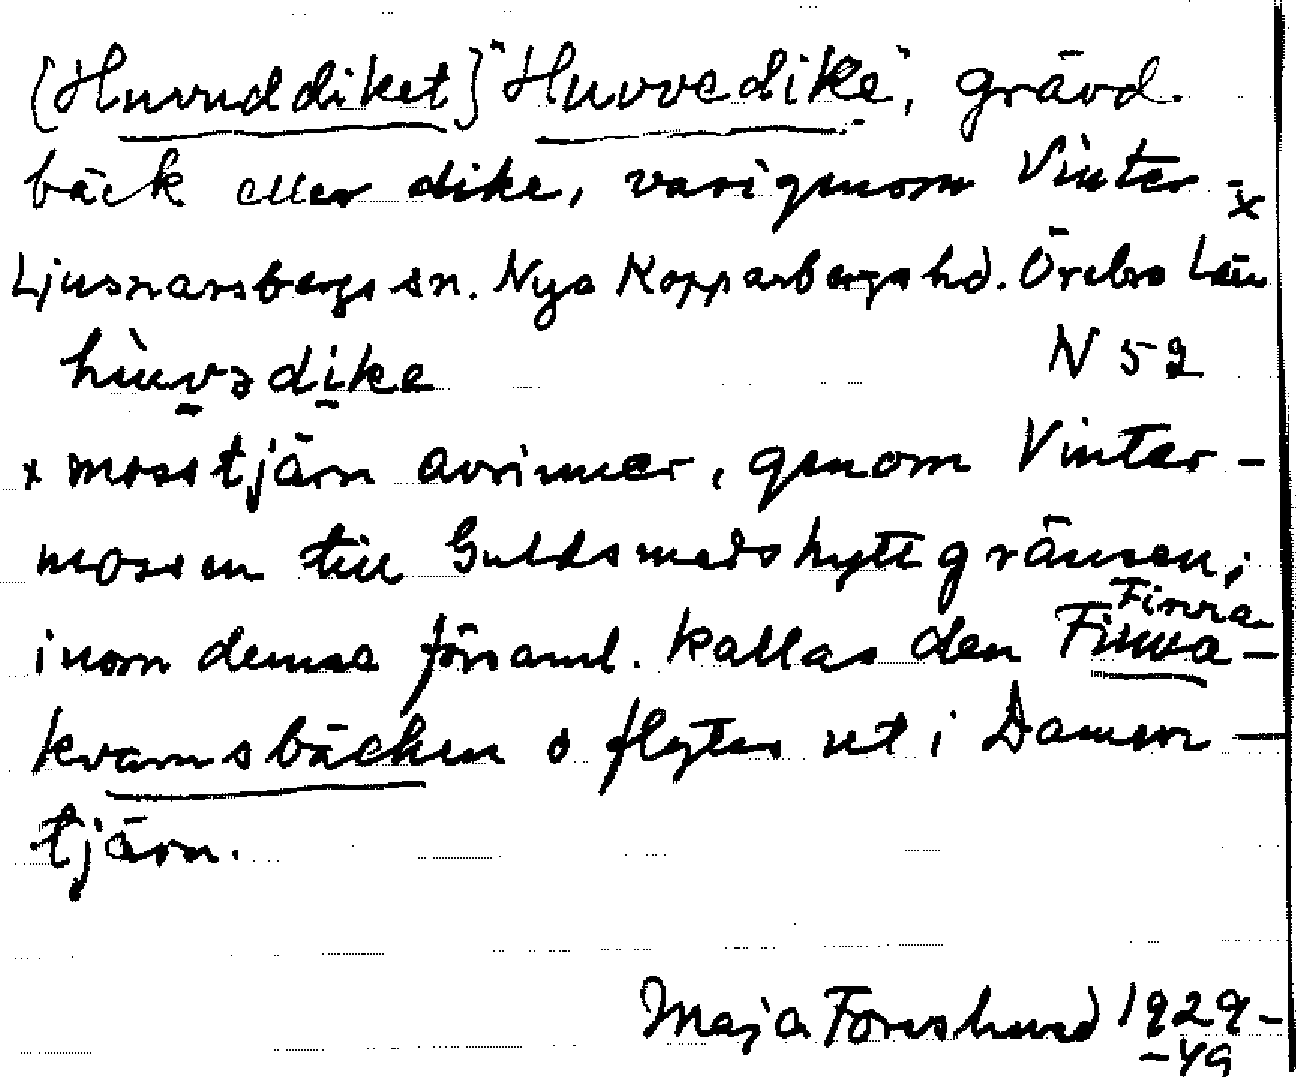 [Huvuddiket] "Huvvedike", grävd
bäck eller dike, varigenom Vinter-x
Ljusnarsbergs sn. Nya Kopparbergs hd. Örebro Län
hùvədike N 52
x mosstjärn avrinner, genom Vinter-
mossen till Guldsmedshyttegränsen;
inom denna församl. kallas den Finna-
Finna
kvarnsbäcken o flyter ut i Damm-
tjärn.
Maja Forslund 1929-
-49